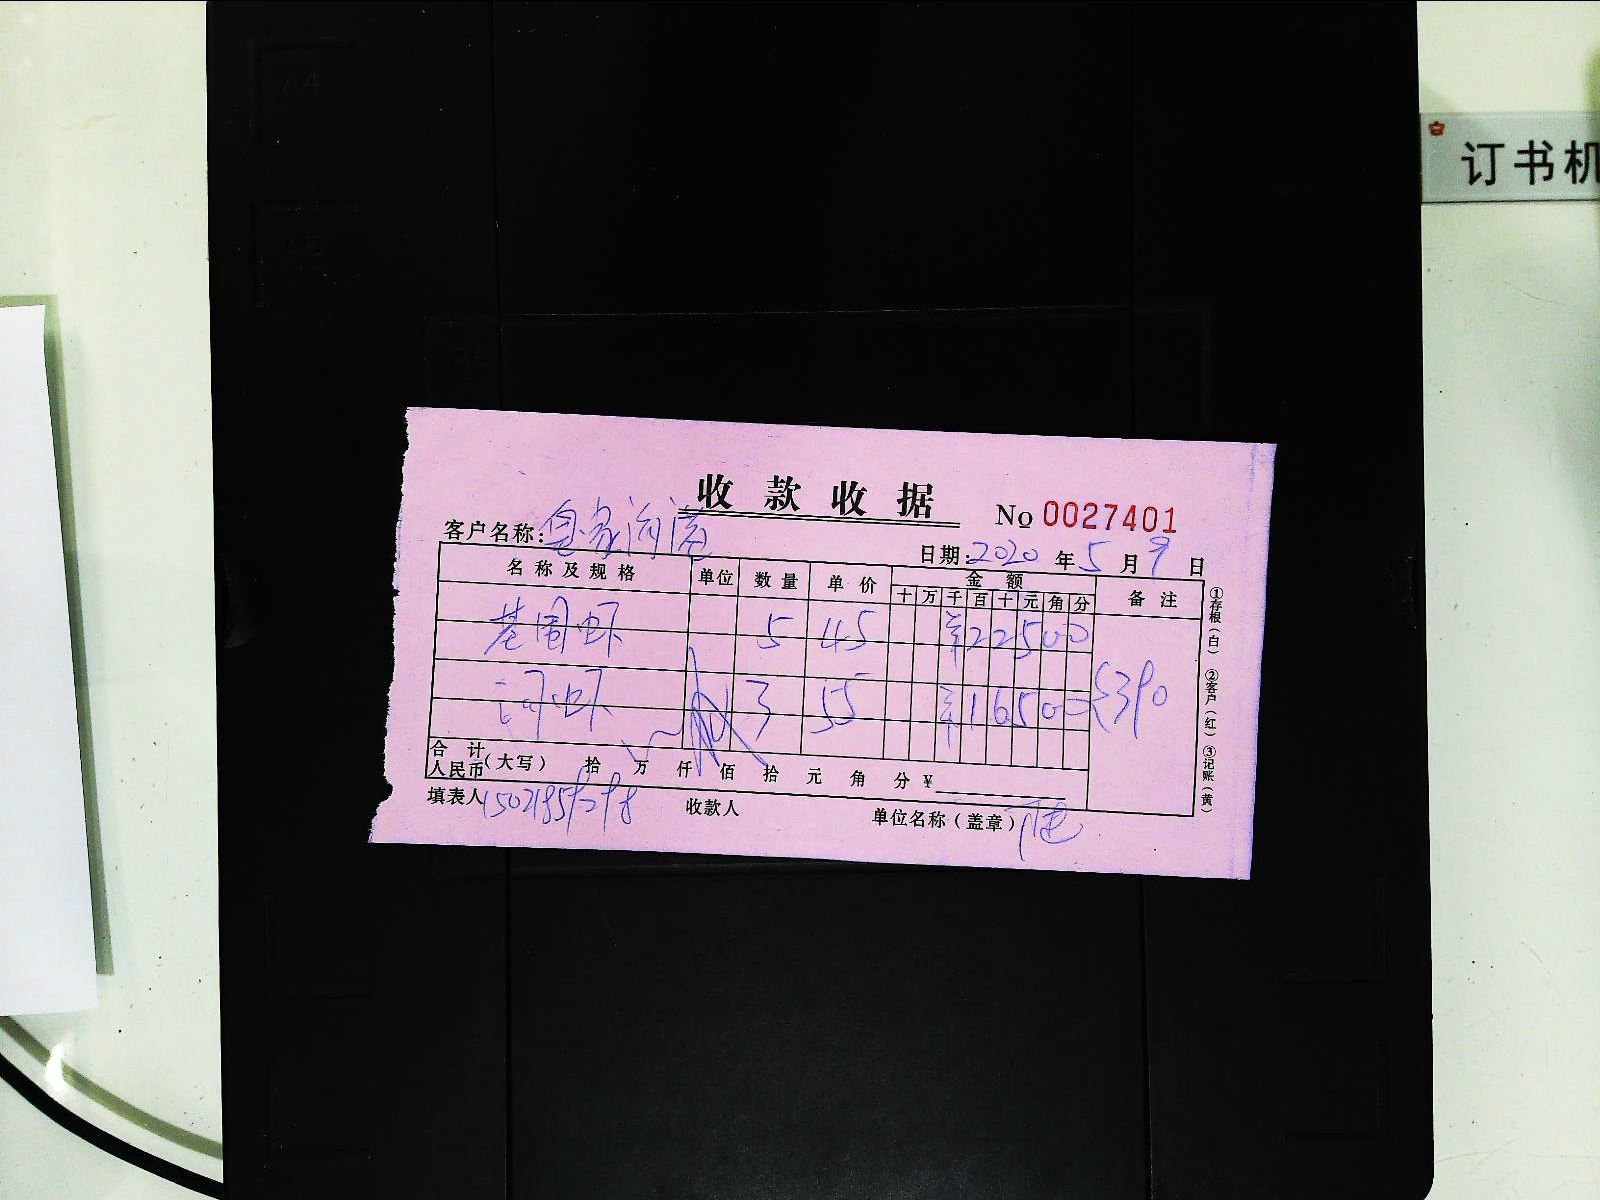 A4
A5
订书机
收款收据
No 0027401
客户名称:
日期:2020 年 5 月 9 日
名称及规格 单位 数量 单价 金额 备注
十 万 千 百 十 元 角 分
基围虾 5 45 ¥22500
河虾 3 55 ¥16500 390
合计
人民币(大写) 拾 万 仟 佰 拾 元 角 分 ¥
填表人 收款人 单位名称(盖章)
①存根(白) ②客户(红) ③记账(黄)